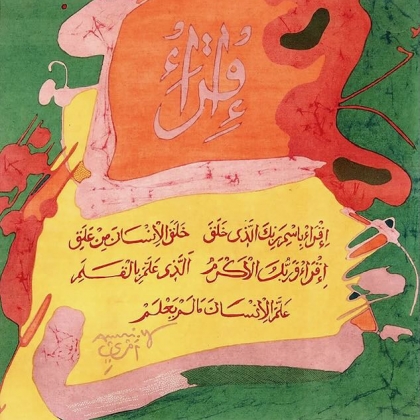 إقرأ
إقرأ باسم ربك الذي خلق خلق الإنسان من علق
إقرأ وربك الأكرم الذي علم بالقلم
علم الإنسان ما لم يعلم